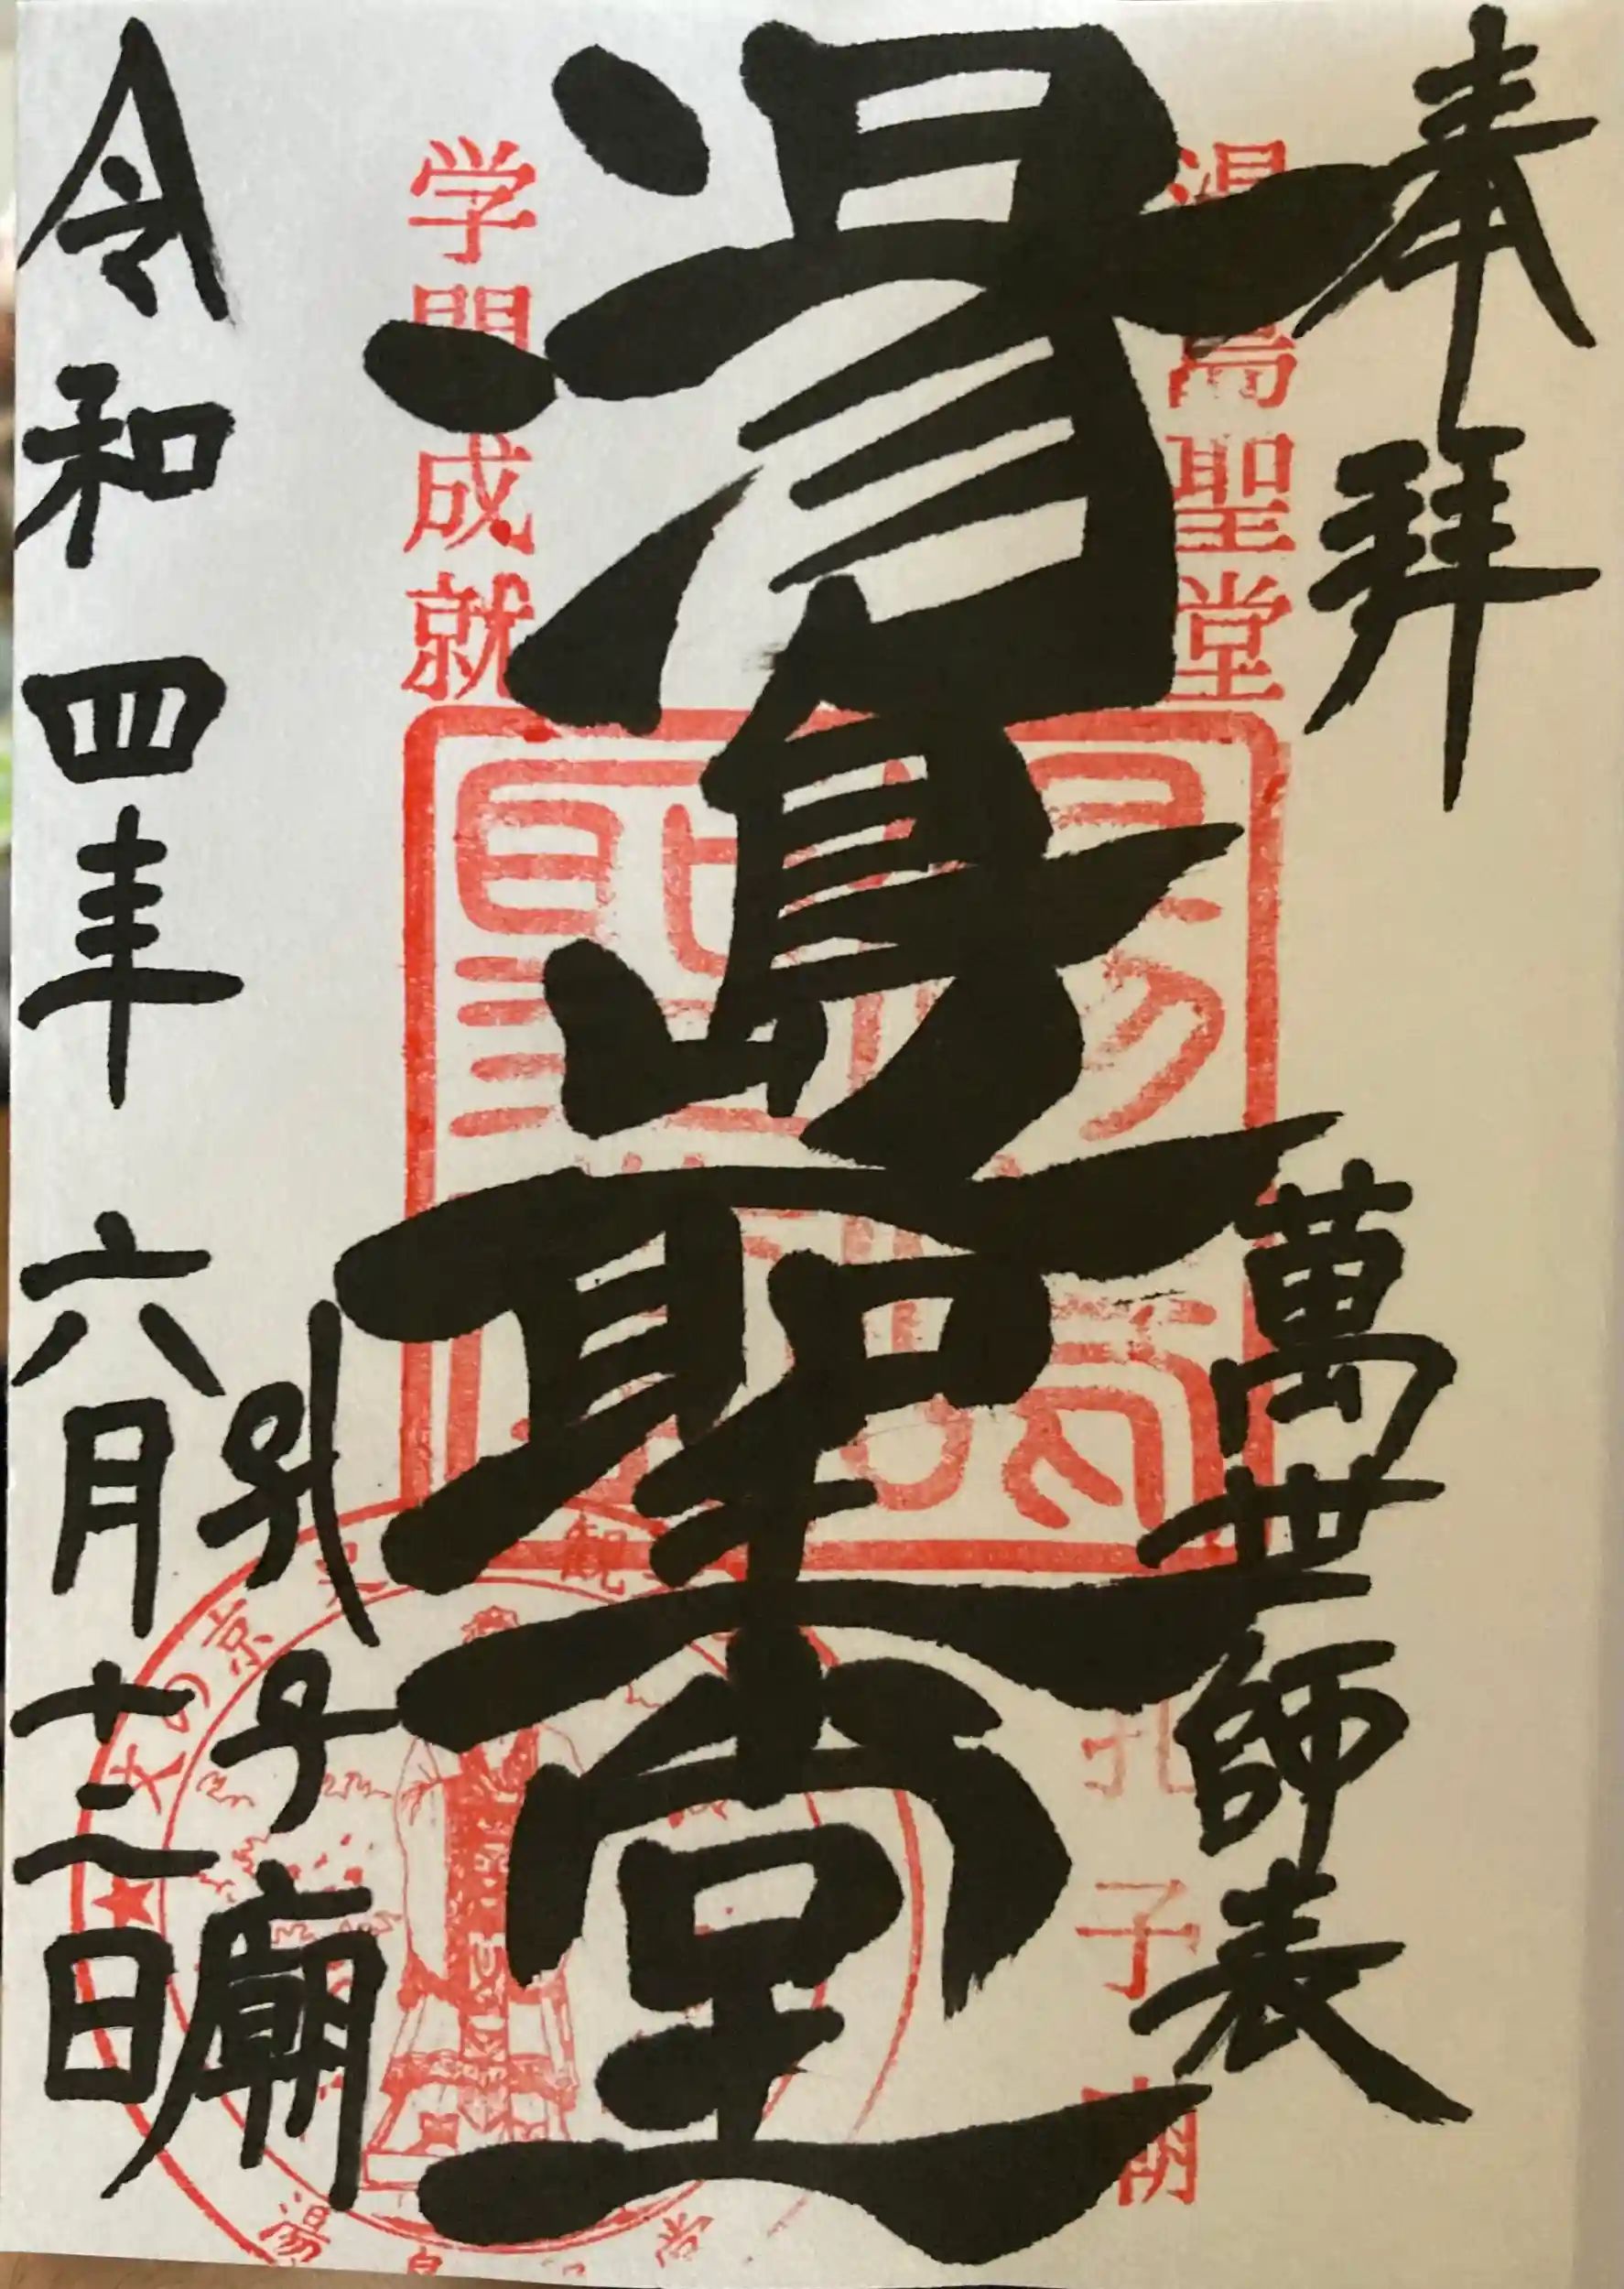 奉拝
萬世師表
湯島聖堂
湯島聖堂
孔子廟
学問成就
孔子廟
令和四年六月十二日